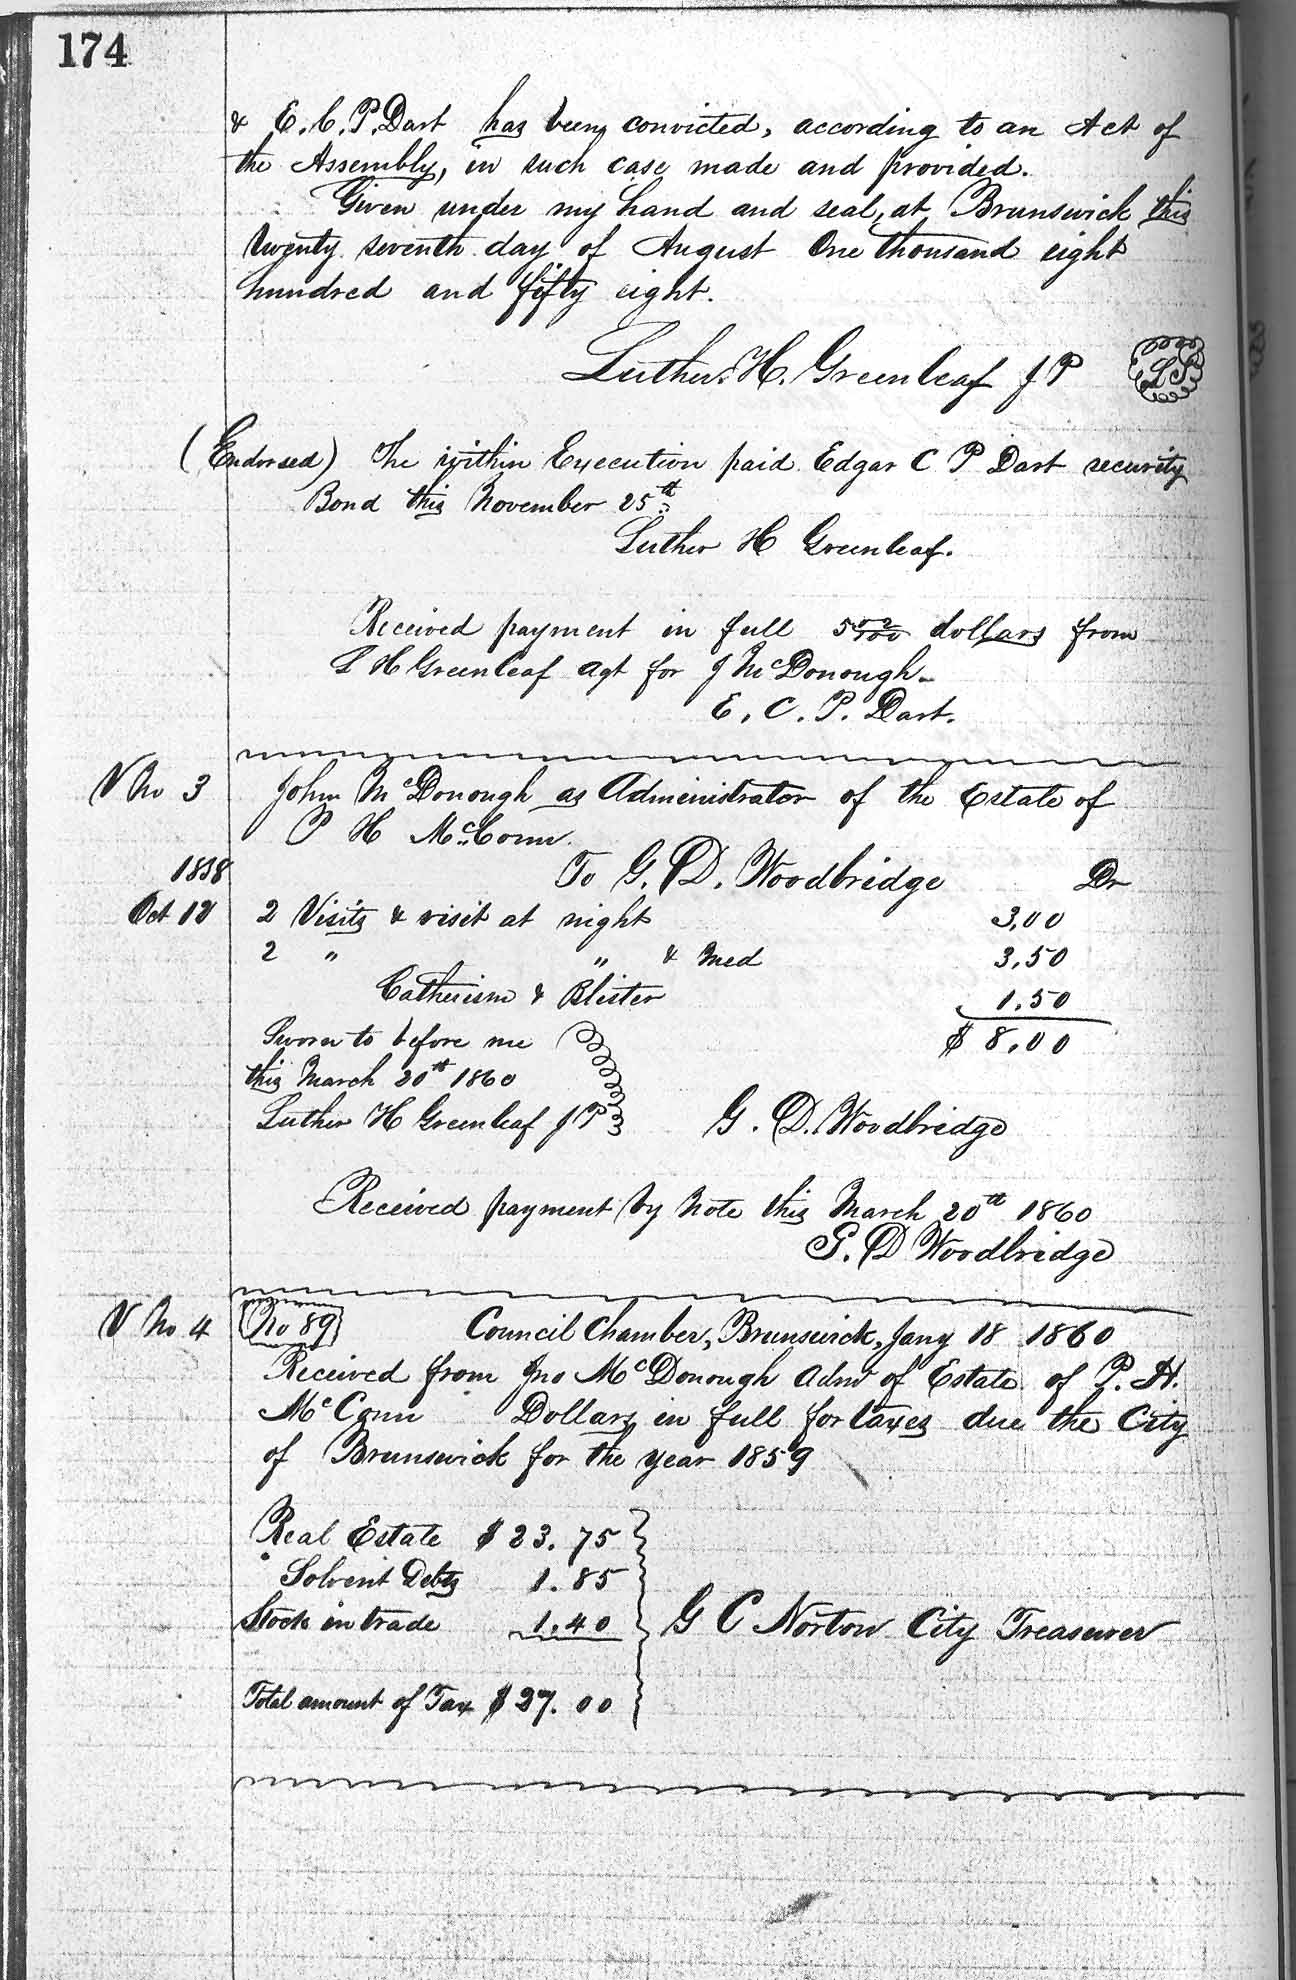 174
& E. C. P. Dart has been convicted, according to an Act of
the Assembly, in such case made and provided.
Given under my hand and seal, at Brunswick this
twenty seventh day of August One thousand eight
hundred and fifty eight.
Luther. H. Greenleaf J P
L S
(Endorsed) The within Execution paid Edgar C P Dart security
Bond this November 25th
Luther H Greenleaf.
Received payment in full dollars from
L H Greenleaf agt for J McDonough
E. C. P. Dart.
V No 3 John McDonough as Administrator of the Estate of
P H McConn
1858 To G. D. Woodbridge Dr
Oct 12 2 Visits & visit at night 3,00
2 " " & Med 3.50
& Blister 1.50
$ 8,00
Sworn to before me
this March 20th 1860
Luther H Greenleaf J P G. D. Woodbridge
Received payment by Note this March 20th 1860
G. D Woodbridge
V No 4 No 89 Council Chamber, Brunswick, Jany 18 1860
Received from Jno McDonough Admr of Estate of P. H.
McConn Dollars in full for taxes due the City
of Brunswick for the year 1859
Real Estate $ 23.75
Solvent Debts 1.85
Stock in trade 1.40 G C Norton City Treasurer
Total amount of Tax $ 27.00